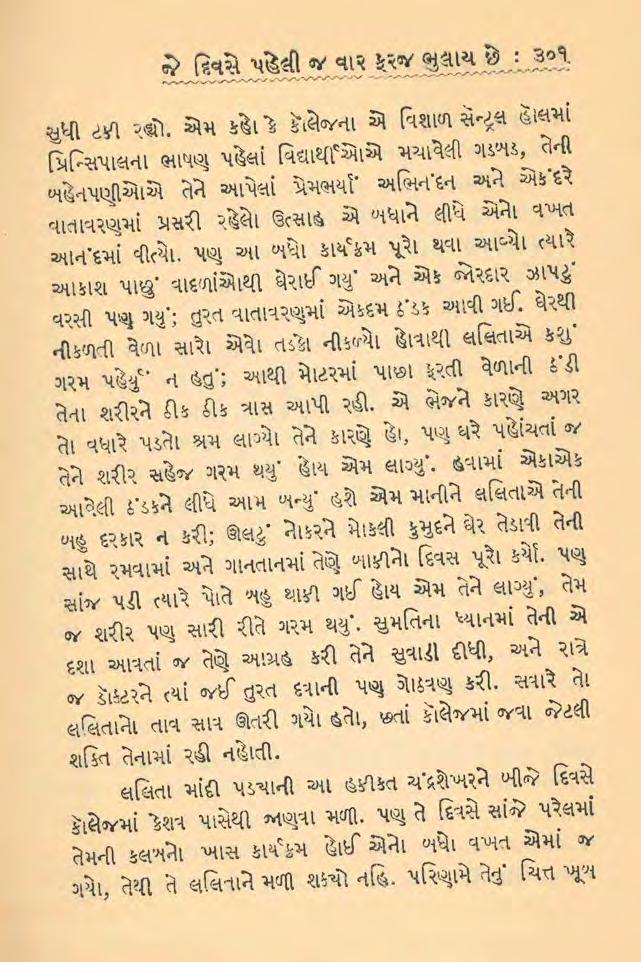 જે દિવસે પહેલી જ વાર ફરજ ભુલાય છે : ૩૦૧
સુધી ટકી રહ્યો. એમ કહો કે કૉલેજના એ વિશાળ સેન્ટ્રલ હૉલમાં
પ્રિન્સિપાલના ભાષણ પહેલાં વિદ્યાર્થીઓએ મચાવેલી ગડબડ, તેની
બહેનપણીઓએ તેને આપેલાં પ્રેમભર્યાં અભિનંદન અને એકંદરે
વાતાવરણમાં પ્રસરી રહેલો ઉત્સાહ એ બધાને લીધે એનો વખત
આનંદમાં વીત્યો. પણ આ બધો કાર્યક્રમ પૂરો થવા આવ્યો ત્યારે
આકાશ પાછું વાદળાંઓથી ઘેરાઈ ગયું અને એક જોરદાર ઝાપટું
વરસી પણ ગયું; તુરત વાતાવરણમાં એકદમ ઠંડક આવી ગઈ. ઘેરથી
નીકળતી વેળા સારો એવો તડકો નીકળ્યો હોવાથી લલિતાએ કશું
ગરમ પહેર્યું ન હતું; આથી મોટરમાં પાછા ફરતી વેળાની ઠંડી
તેના શરીરને ઠીક ઠીક ત્રાસ આપી રહી. એ ભેજને કારણે અગર
તો વધારે પડતો શ્રમ લાગ્યો તેને કારણે હો, પણ ઘરે પહોંચતાં જ
તેને શરીર સહેજ ગરમ થયું હોય એમ લાગ્યું. હવામાં એકાએક
આવેલી ઠંડકને લીધે આમ બન્યું હશે એમ માનીને લલિતાએ તેની
બહુ દરકાર ન કરી; ઊલટું નોકરને મોકલી કુમુદને ઘેર તેડાવી તેની
સાથે રમવામાં અને ગાનતાનમાં તેણે બાકીનો દિવસ પૂરો કર્યો. પણ
સાંજ પડી ત્યારે પોતે બહુ થાકી ગઈ હોય એમ તેને લાગ્યું, તેમ
જ શરીર પણ સારી રીતે ગરમ થયું. સુમતિના ધ્યાનમાં તેની એ
દશા આવતાં જ તેણે આગ્રહ કરી તેને સુવાડી દીધી, અને રાત્રે
જ ડૉક્ટરને ત્યાં જઈ તુરત દવાની પણ ગોઠવણ કરી. સવારે તો
લલિતાનો તાવ સાવ ઊતરી ગયો હતો, છતાં કૉલેજમાં જવા જેટલી
શક્તિ તેનામાં રહી નહોતી.
લલિતા માંદી પડ્યાની આ હકીકત ચંદ્રશેખરને બીજે દિવસે
કૉલેજમાં કેશવ પાસેથી જાણવા મળી. પણ તે દિવસે સાંજે પરેલમાં
તેમની કલબનો ખાસ કાર્યક્રમ હોઈ એનો બધો વખત એમાં જ
ગયો, તેથી તે લલિતાને મળી શક્યો નહિ. પરિણામે તેનું ચિત્ત ખૂબ